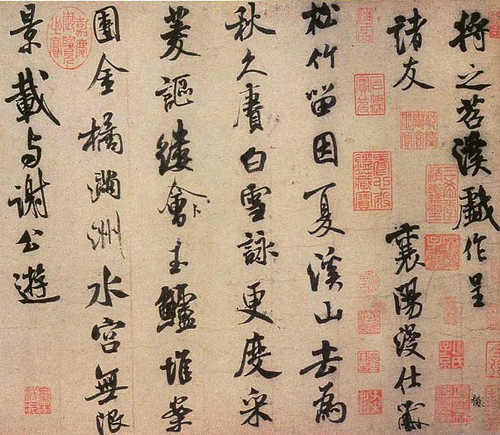 將之苕溪戲作呈
諸友
襄陽漫仕黻
松竹留因夏溪山去為
秋久賡白雪詠更度采
菱謳縷會玉鱸堆案
團金橘滿洲水宮無限
景載与謝公遊
嘉慶御覽之寶